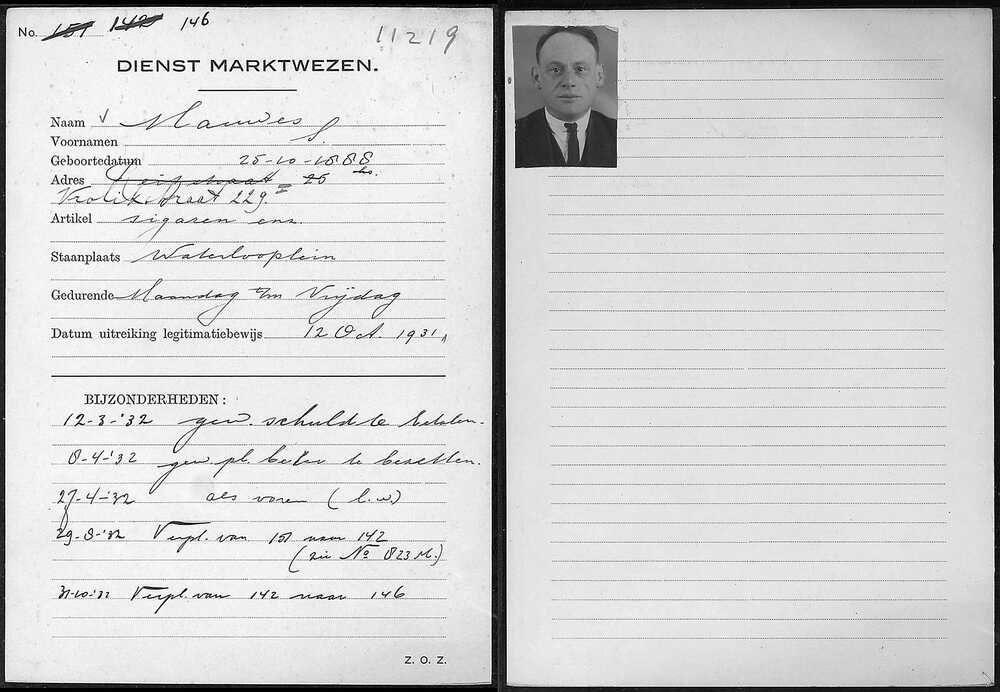 No. 151 142 146
11219
DIENST MARKTWEZEN.
Naam V Mauwes
Voornamen S.
Geboortedatum 25-10-1888
Adres 26 hs.
Vrolikstraat 229 II
Artikel sigaren enz.
Staanplaats Waterlooplein
Gedurende Maandag t/m Vrijdag
Datum uitreiking legitimatiebewijs 12 Oct. 1931
BIJZONDERHEDEN:
12-3-'32 gew. schuld te betalen.
8-4-'32 gew. pl. beter te bezetten.
27-4-'32 als voren (l.w)
29-8-'32 Verpl. van 151 naar 142
(zie No 823 M.)
31-10-'32 Verpl. van 142 naar 146
Z. O. Z.